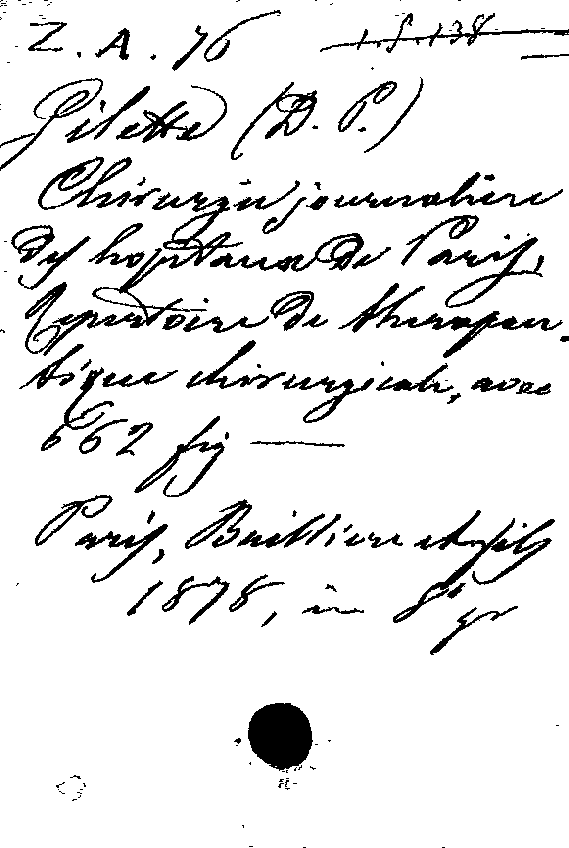 Z. A. 76 1.S.138
Gilette (D. P.)
Chirurgie journaliere
des hopitaux de Paris,
Repertoire de therapeu-
tique chirurgicale, avec
662 fig —
Paris, Baillière et fils
1878, in 8° gr